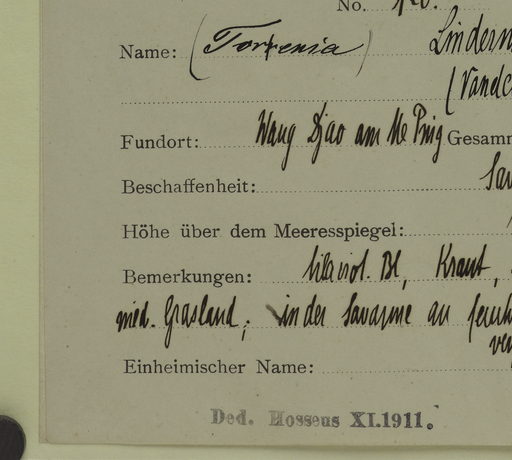 No.
Name: (Torrenia)
Fundort: Wang Djao am Me Ping Gesamm
Beschaffenheit:
Höhe über dem Meeresspiegel:
Bemerkungen: lilaviol. Bl, Kraut,
med. Grasland; in der Savanne an
Einheimischer Name:
Ded. Hosseus XI.1911.